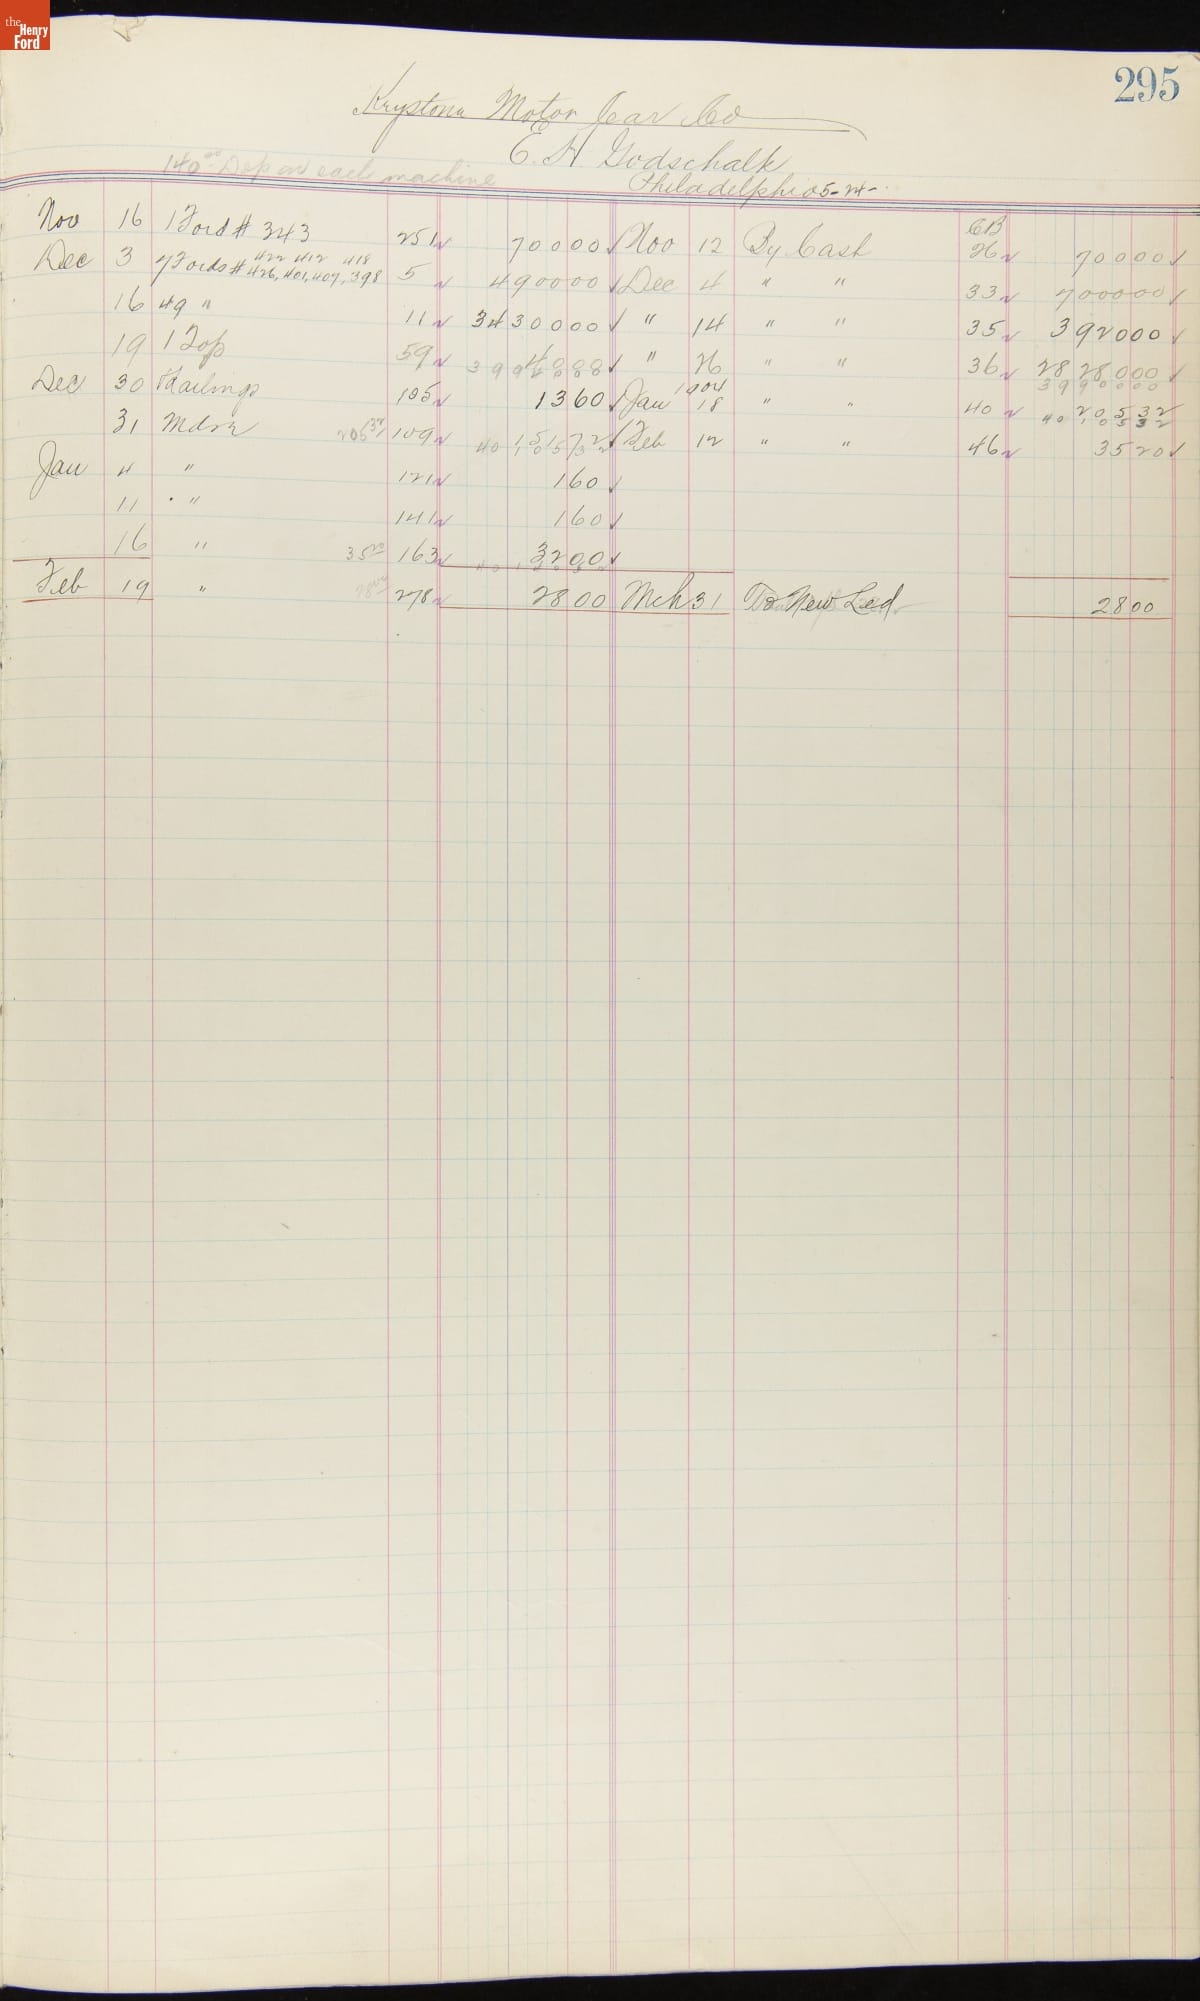 the Henry Ford
295
Krystona Motor Car Co
E. H Godschalk
140.00 Dep on each machine Philadelphia
CB
Nov 16 1 Ford # 343 251 70000 Nov 12 By Cash 26 70000
422 412 418
Dec 3 7 Fords # 426, 401, 407, 398 5 490000 Dec 4 " " 33 700000
16 49 " 11 3430000 " 14 " " 35 392000
19 1 Top 59 " 26 " " 36 2828000
3990000
1904
Dec 30 Railings 105 1360 Jan 18 " " 40 20532
4010532
31 Mdse 205 32 109 Feb 12 " " 46 3520
Jan 4 " 121 160
11 " 141 160
16 " 35 20 163 3200
Feb 19 " 28 00 278 2800 Mch 31 To New Led 2800